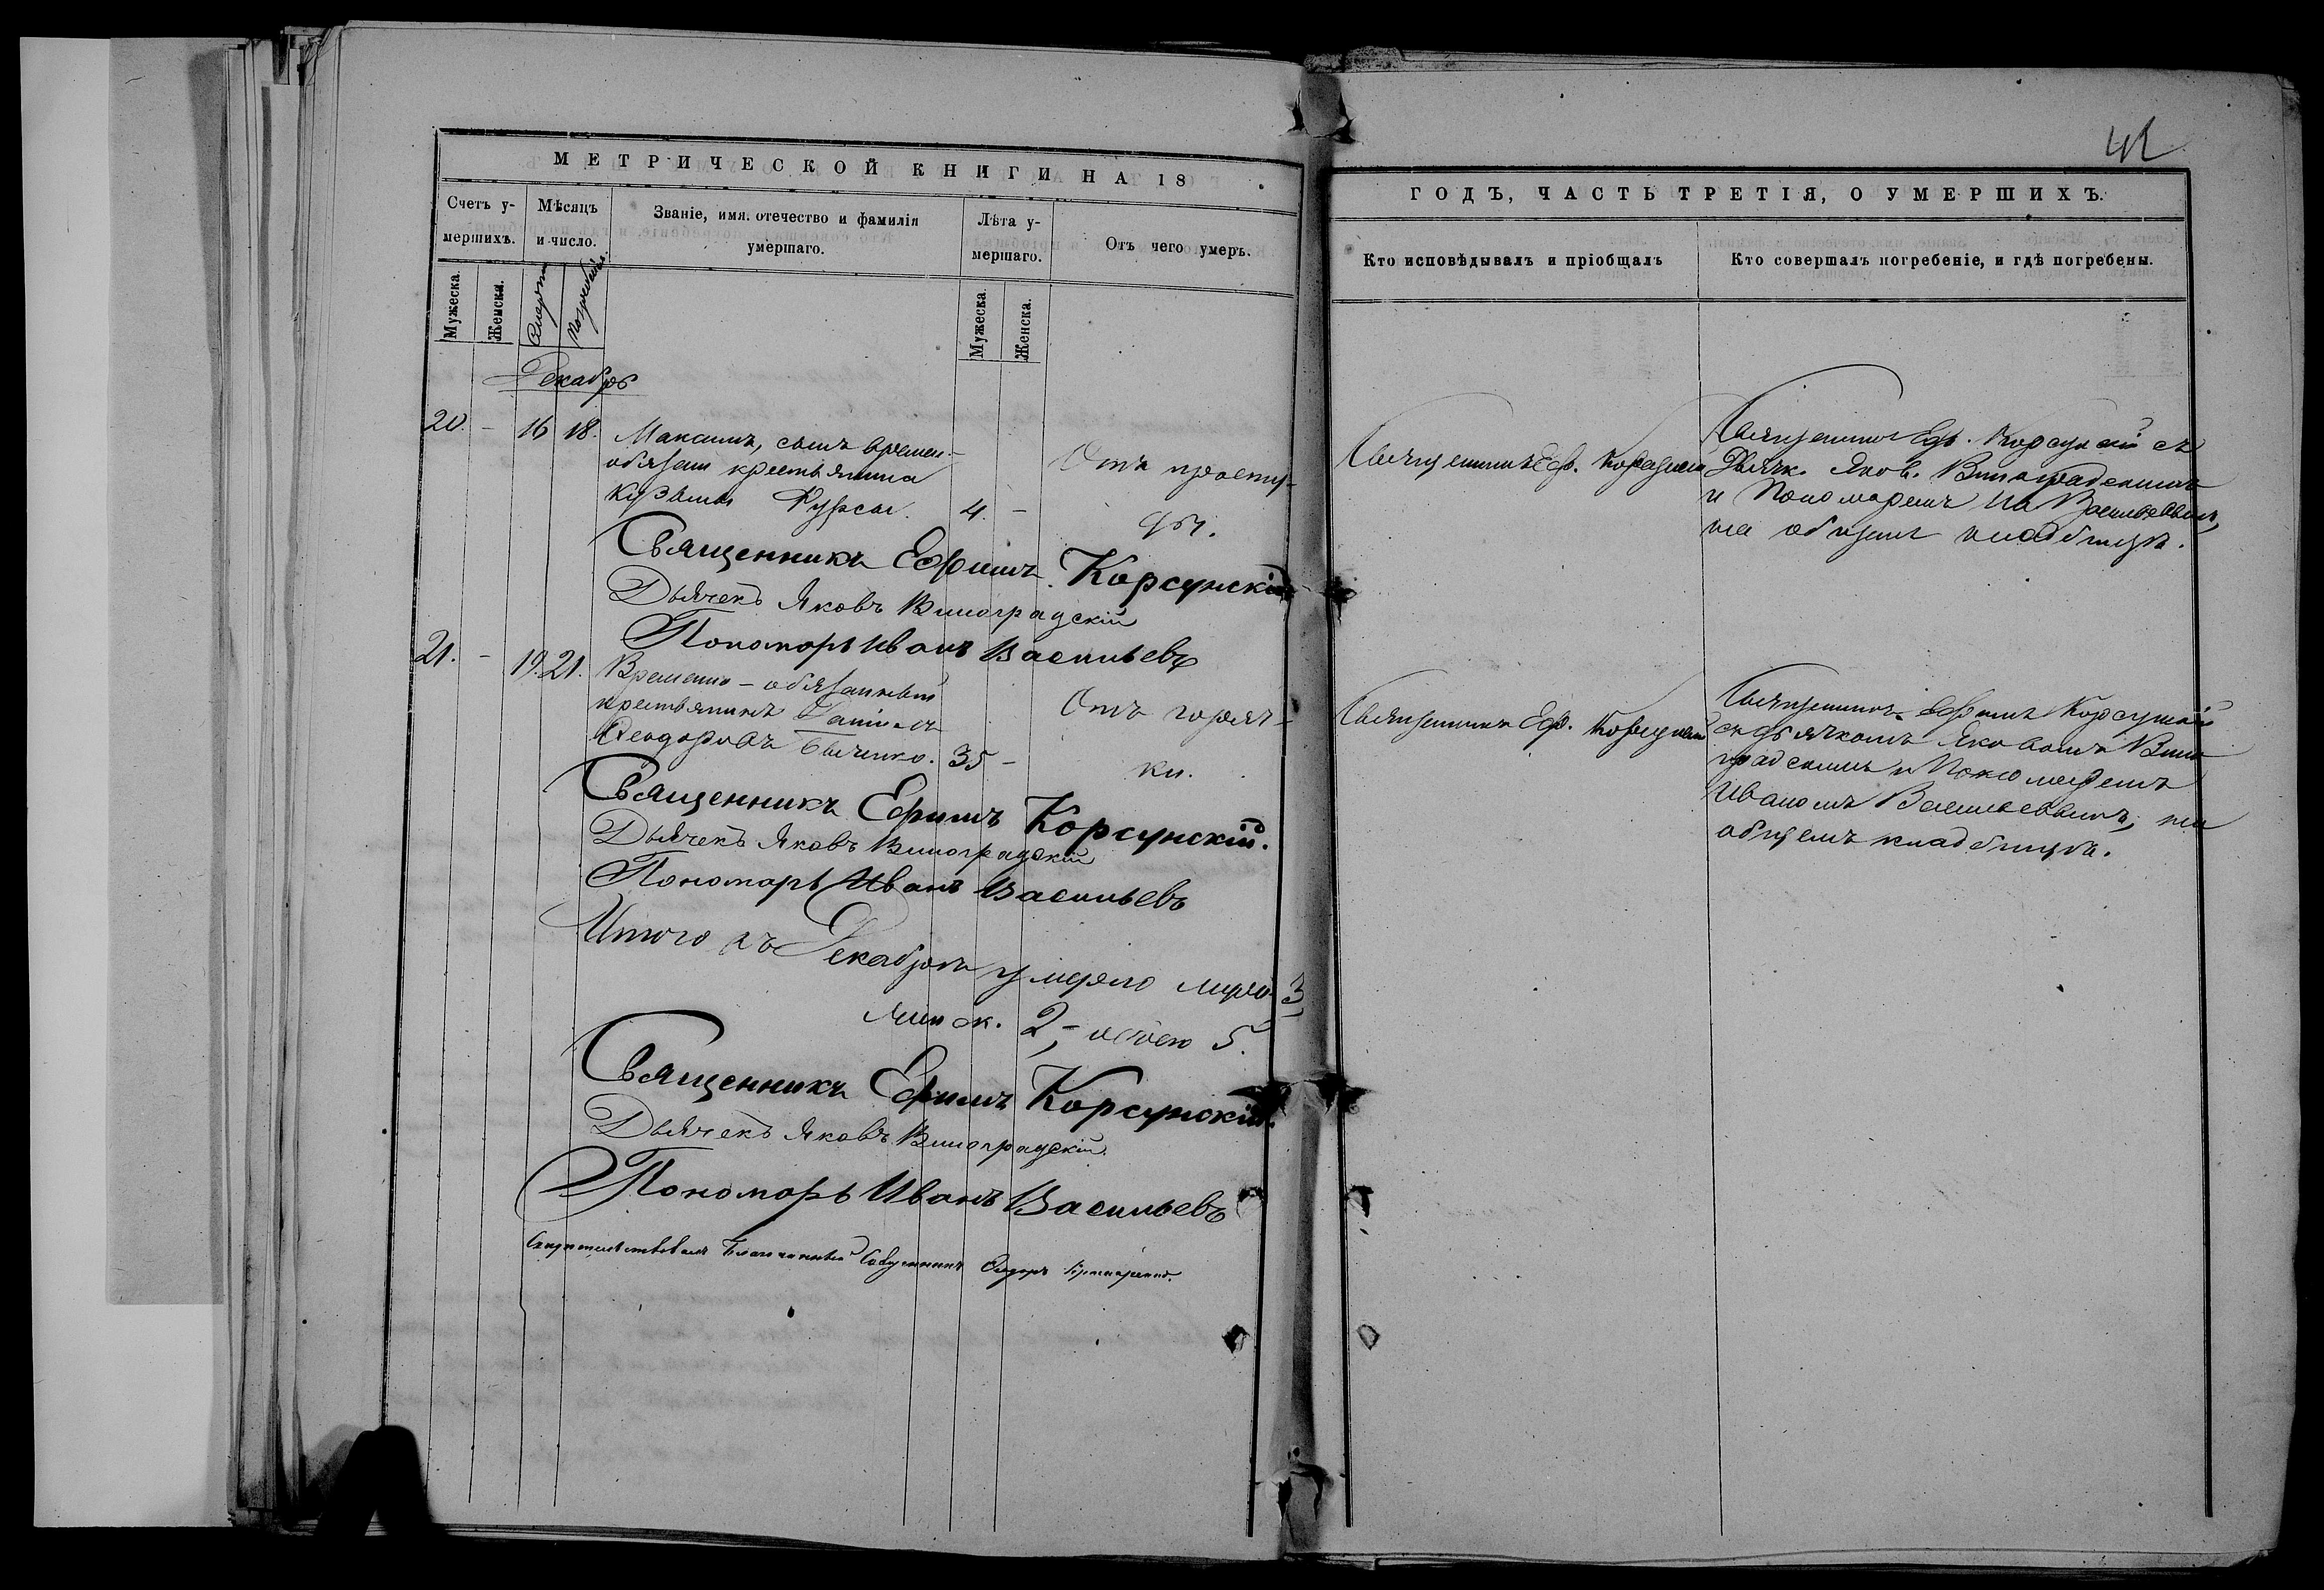 МЕТРИЧЕСКОЙ КНИГИ НА 18
Счетъ у-
мершихъ.
Мѣсяцъ
и число.
Званіе, имя. отечество и фамилія
умершаго.
Лѣта у-
мершаго.
Отъ чего умеръ.
Мужеска.
Женска.
Смерти
Погребенія
Мужеска
Женска.
Декабрь
20. - 16 18. Максимъ, сынъ времен-
обязан крестьянина
Кузьмы 4. -
Отъ просту-
ды.
Священникъ Ефимъ Корсунскій
Дьячекъ Яковъ Виноградскій
Пономарь Иванъ Васильевъ
21. - 19. 21. Временно-обязанный
крестьянинъ
Феодоровъ Быченко. 35 -
Отъ горяч-
ки.
Священникъ Ефимъ Корсунскій.
Дьячекъ Яковъ Виноградскій
Пономарь Иванъ Васильевъ
Итого въ Декабрѣ умерло муж. 3
женск. 2, - обоего 5.
Священникъ Ефимъ Корсунскій.
Дьячекъ Яковъ Виноградскій.
Пономарь Иванъ Васильевъ
Свидѣтельствовалъ Благочинный Священникъ Федоръ
42
ГОДЪ, ЧАСТЬ ТРЕТІЯ, О УМЕРШИХЪ.
Кто исповѣдывалъ и пріобщалъ
Кто совершалъ погребеніе, и гдѣ погребены.
Священникъ Еф. Корсунскій
Священникъ Еф. Корсунскій съ
Дьячк. Яков. Виноградскимъ
и Пономаремъ Ив Васильевымъ,
на общемъ кладбищѣ.
Священникъ Еф. Корсунскій
Священникъ Ефимъ Корсунскій
съ дьячкомъ Яковомъ Вино
градскимъ и Пономаремъ
Иваномъ Васильевымъ, на
общемъ кладбищѣ.